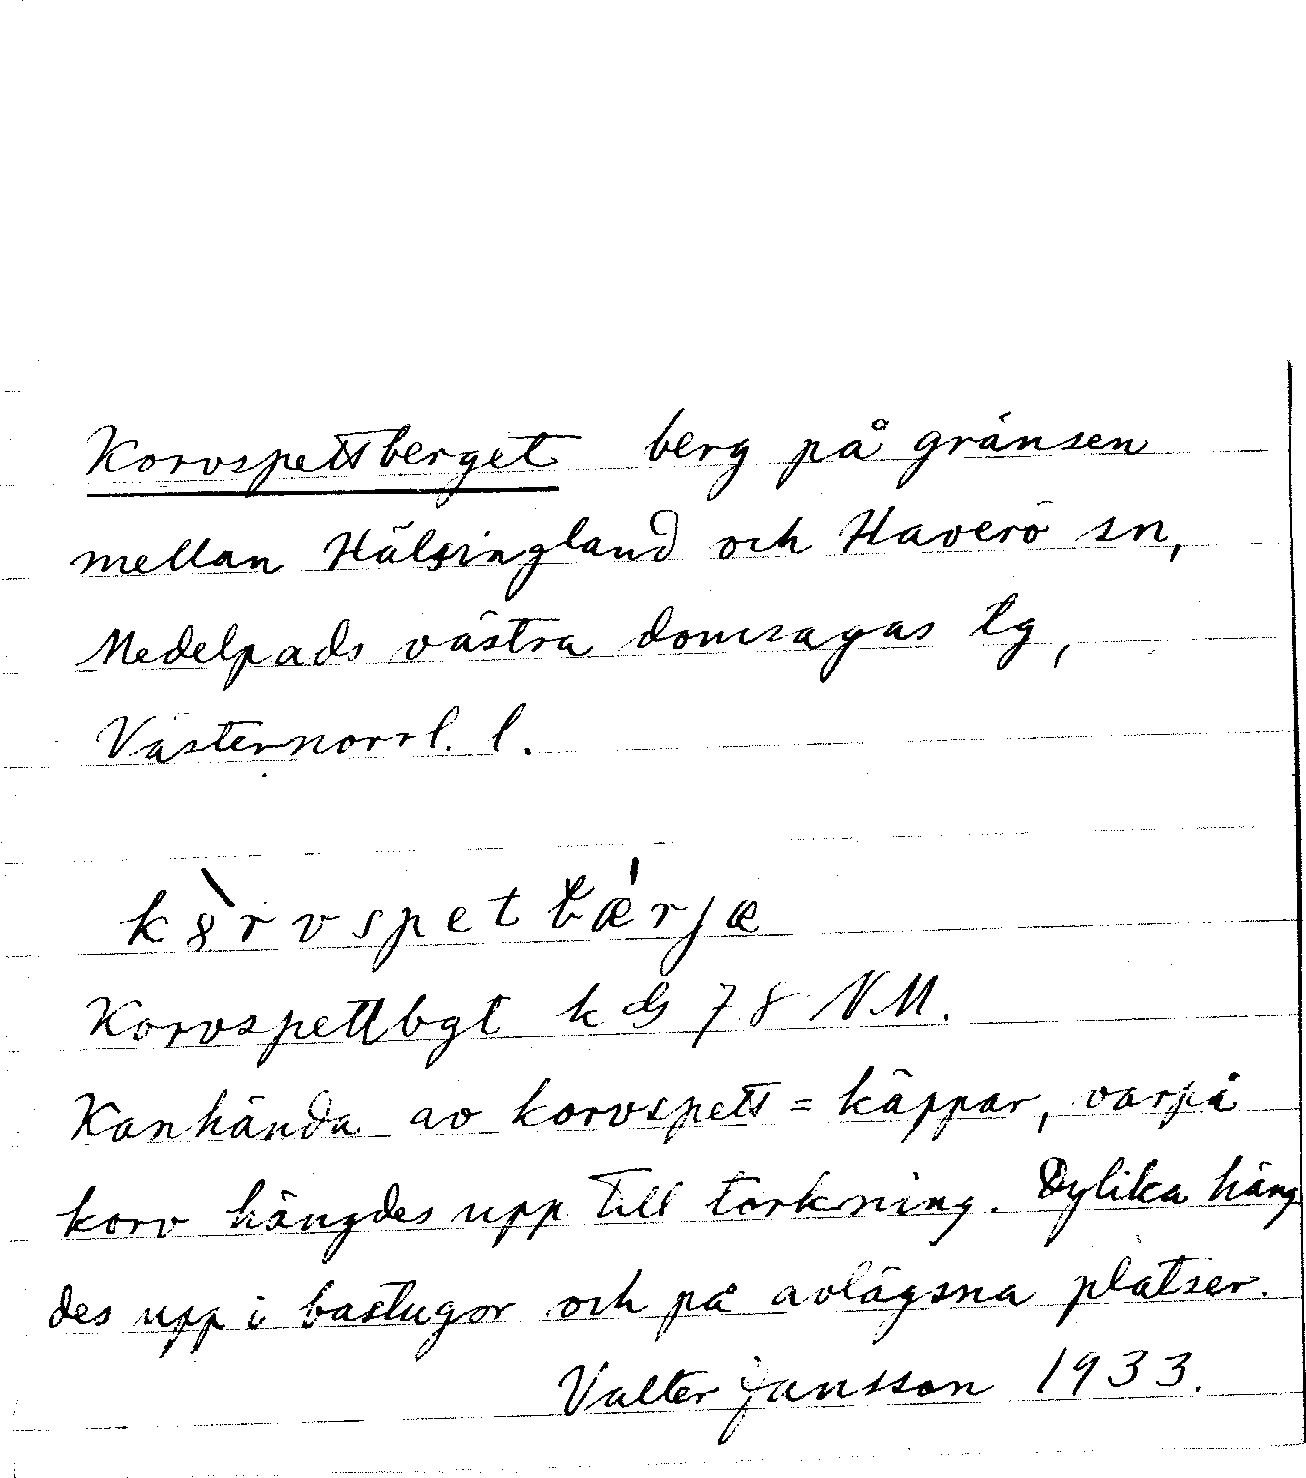 Korvspettsberget berg på gränsen
mellan Hälsingland och Haverö sn,
Medelpads västra domsagas tg,
Västernorrl. l.
kꝏ̀rvspetbǽrjæ
Korvspettbgt k 78 NM.
Kanhända av korvspett = käppar, varpå
korv hängdes upp till torkning. Dylika häng
des upp i bastugor och på avlägsna platser.
Valter Jansson 1933.